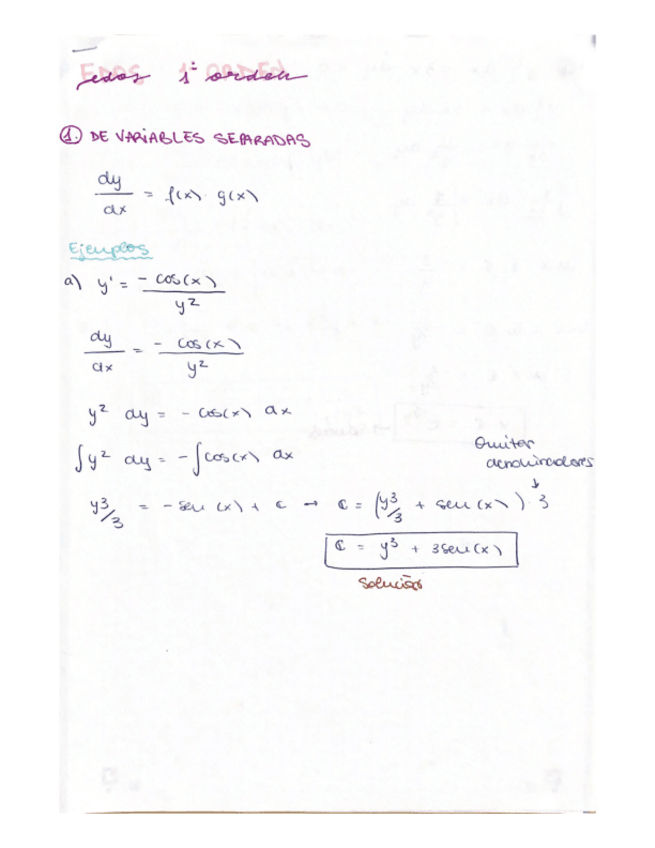 edos 1º orden
1. DE VARIABLES SEPARADAS
dy/dx = f(x) · g(x)
Ejemplos
a) y' = - cos(x) / y²
dy/dx = - cos(x) / y²
y² dy = - cos(x) dx
∫y² dy = -∫cos(x) dx
Quitar denominadores
↓
y³/3 = - sen(x) + c → C = (y³/3 + sen(x)) · 3
C = y³ + 3sen(x)
Solución